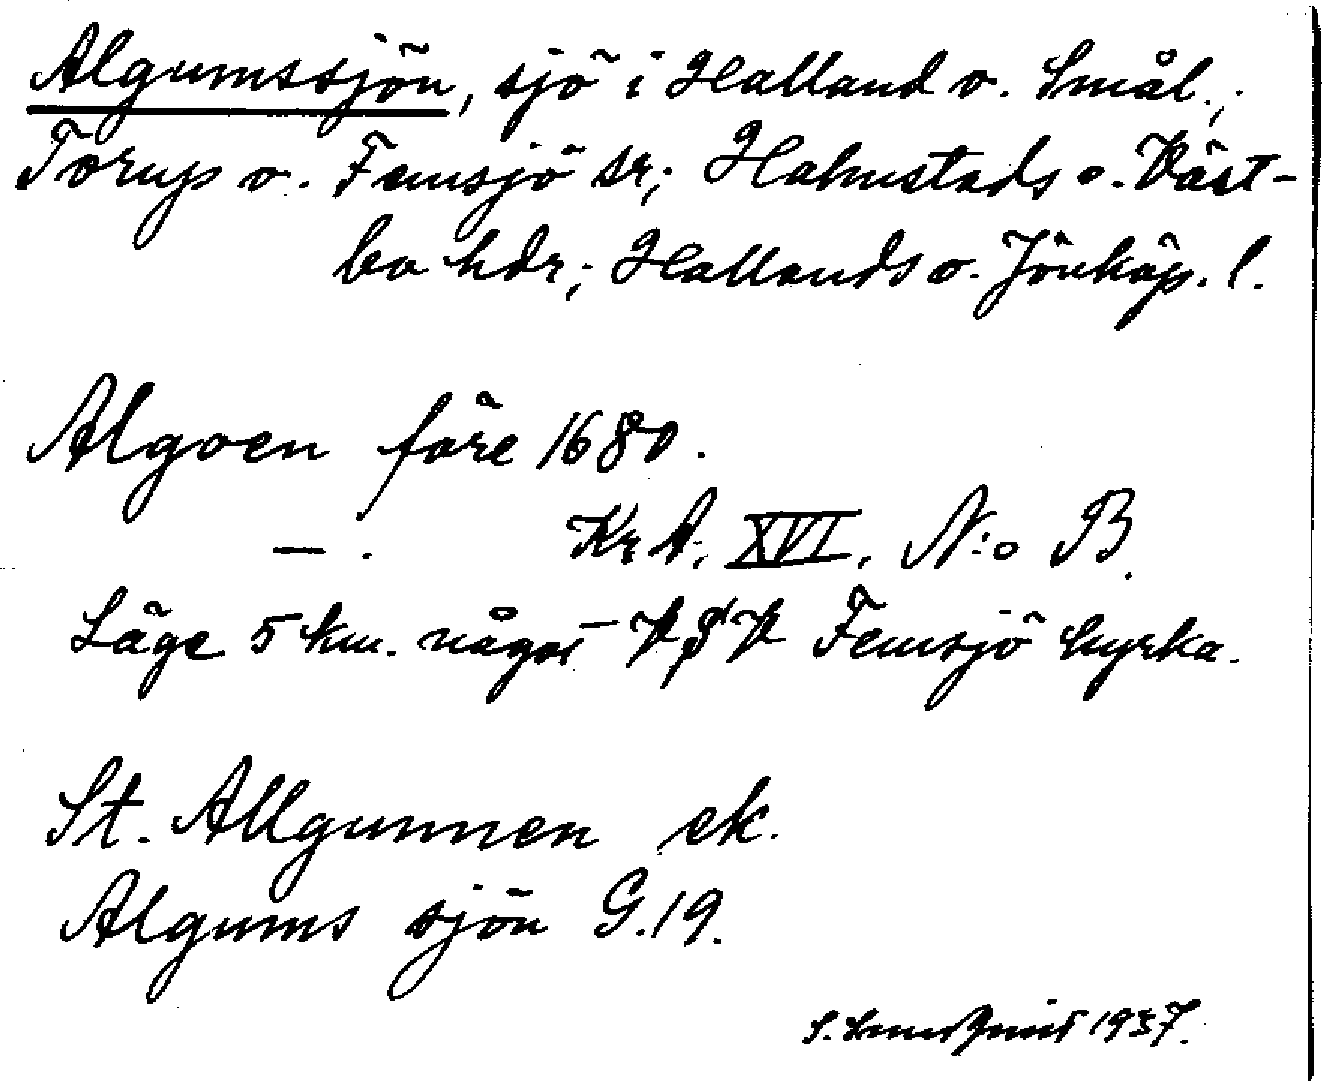 Algumssjön, sjö i Halland o. Smål.;
Torup o. Femsjö sr; Halmstads o. Väst-
bo hdr; Hallands o. Jönköp. l.
Algoen före 1680.
— . KrA, XVI, N:o B.
Läge 5 km. något VSV Femsjö kyrka.
St. Allgunnen ek.
Algums sjön G.19.
S. 1937.